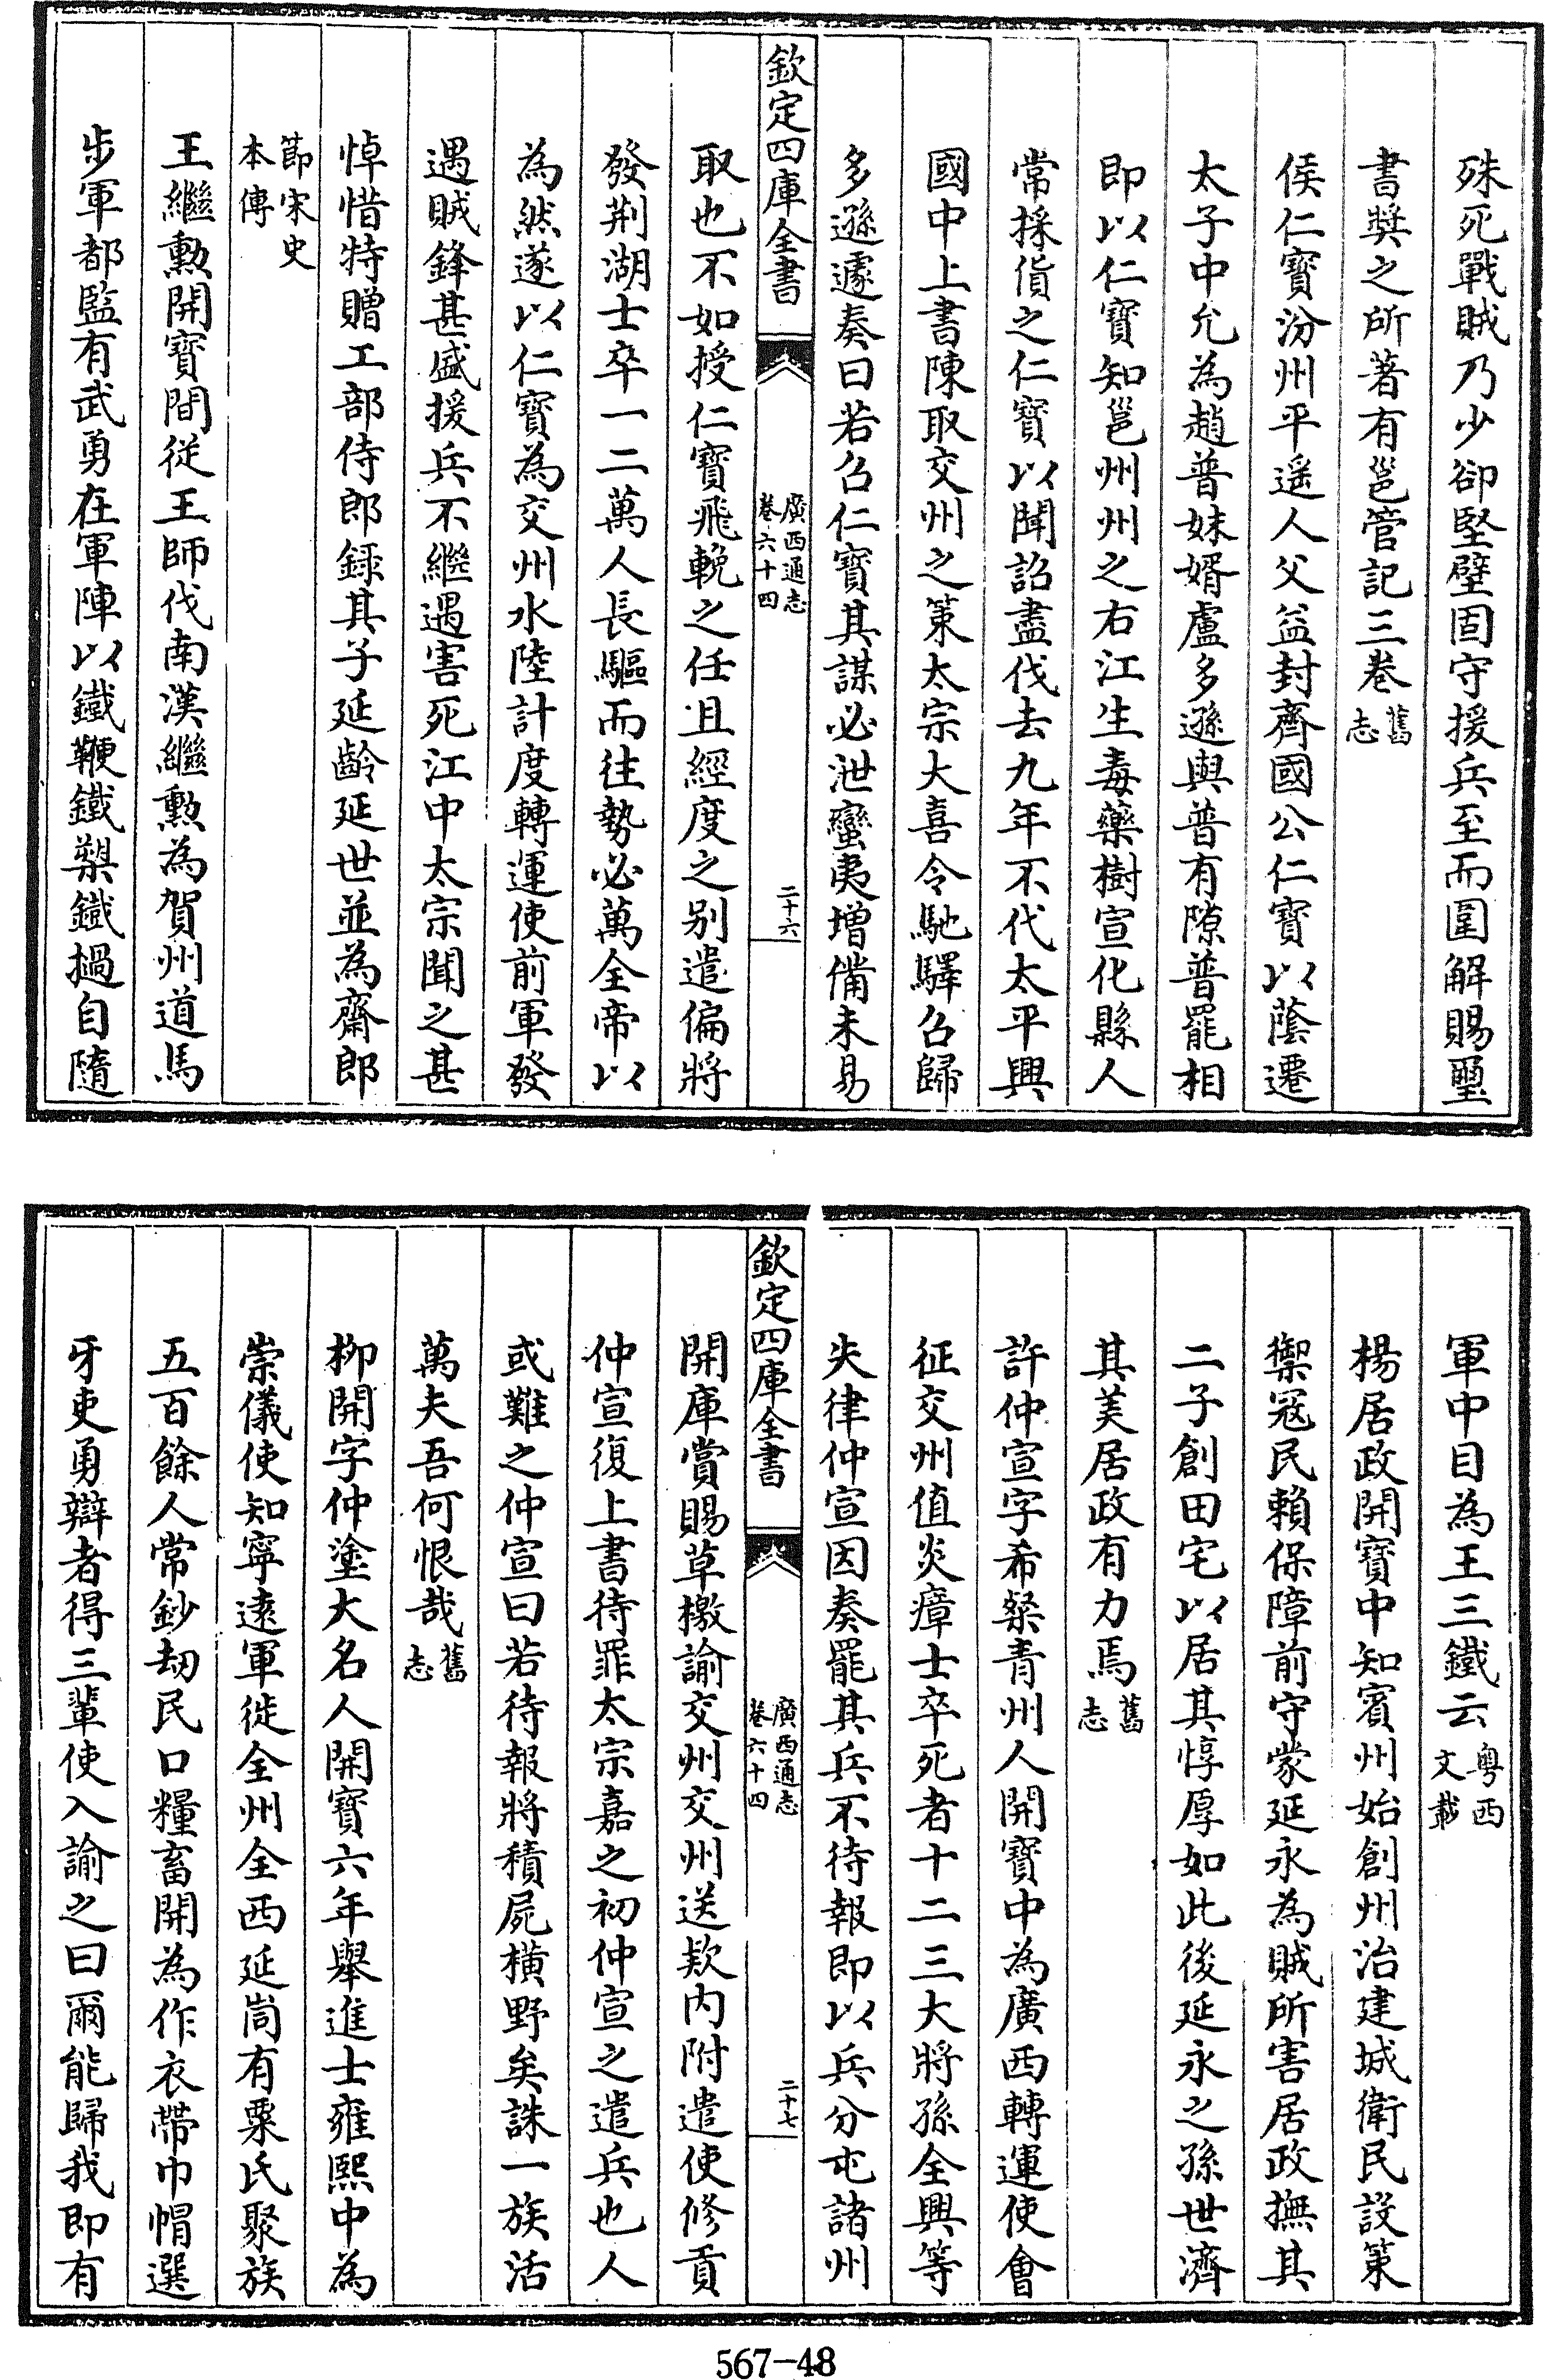 殊死戰賊乃少卻堅壁固守援兵至而圍解賜璽
書奬之所著有邕管記三卷舊志
侯仁寶汾州平遥人父益封齊國公仁寶以蔭遷
太子中允為趙普妹婿盧多遜與普有隙普罷相
即以仁寶知邕州州之右江生毒藥樹宣化縣人
常採貨之仁寶以聞詔盡伐去九年不代太平興
國中上書陳取交州之策太宗大喜令馳驛召歸
多遜遽奏曰若召仁寶其謀必泄蠻夷增備未易
欽定四庫全書
廣西通志
卷六十四
二十六
取也不如授仁寶飛輓之任且經度之别遣偏將
發荆湖士卒一二萬人長驅而往勢必萬全帝以
為然遂以仁寶為交州水陸計度轉運使前軍發
遇賊鋒甚盛援兵不繼遇害死江中太宗聞之甚
悼惜特贈工部侍郎録其子延齡延世並為齋郎
節宋史
本傳
王繼勲開寶間從王師伐南漢繼勲為賀州道馬
步軍都監有武勇在軍陣以鐵鞭鐵槊鐵撾自隨
軍中目為王三鐵云粤西文載
楊居政開寶中知賓州始創州治建城衛民設策
禦冦民賴保障前守蒙延永為賊所害居政撫其
二子創田宅以居其惇厚如此後延永之孫世濟
其美居政有力焉舊志
許仲宣字希粲青州人開寶中為廣西轉運使會
征交州值炎瘴士卒死者十二三大將孫全興等
失律仲宣因奏罷其兵不待報即以兵分屯諸州
欽定四庫全書
廣西通志
卷六十四
二十七
開庫賞賜草檄諭交州交州送欵内附遣使修貢
仲宣復上書待罪太宗嘉之初仲宣之遣兵也人
或難之仲宣曰若待報將積屍横野矣誅一族活
萬夫吾何恨哉舊志
栁開字仲塗大名人開寶六年舉進士雍熙中為
崇儀使知寧逺軍徙全州全西延峝有粟氏聚族
五百餘人常鈔刼民口糧畜開為作衣帶巾帽選
牙吏勇辯者得三輩使入諭之曰爾能歸我即有
567-48